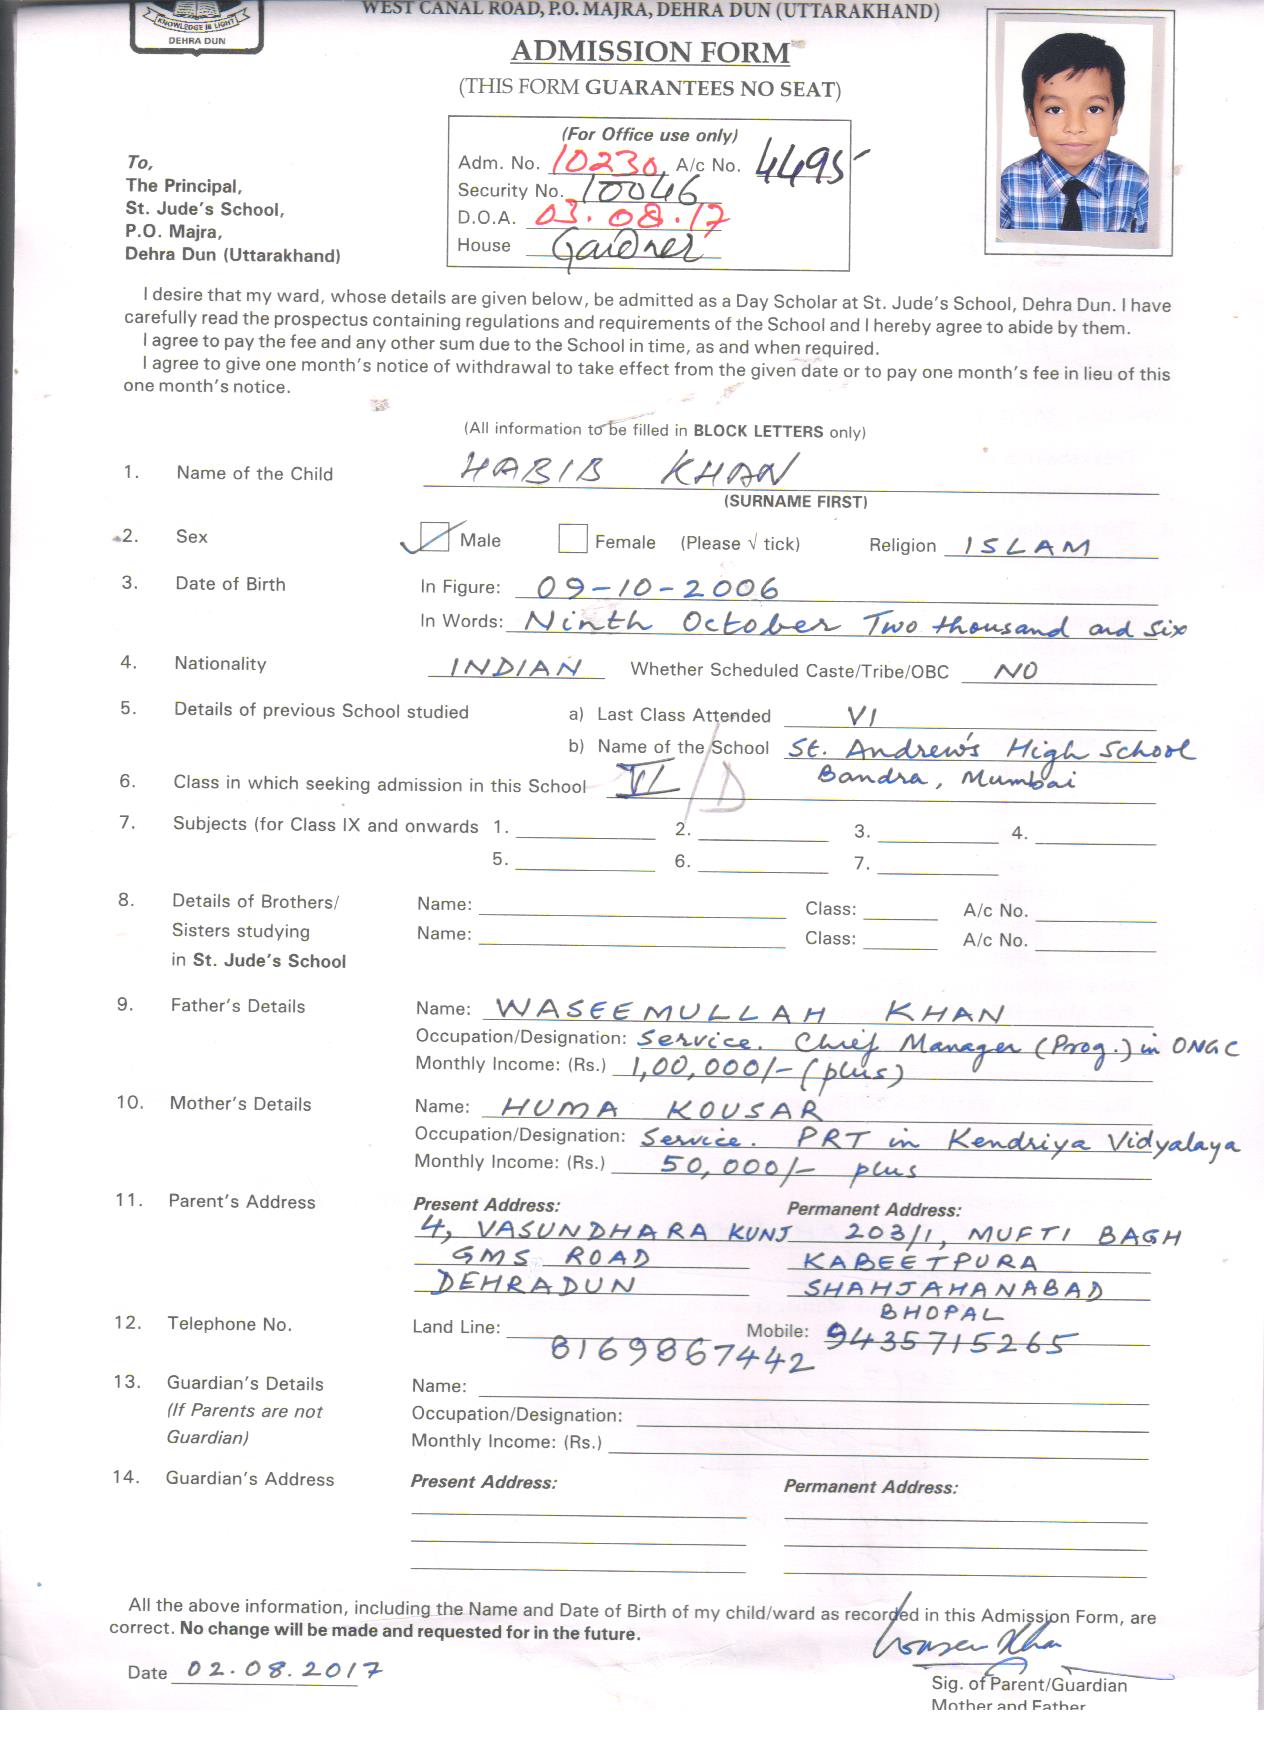 KNOWLEDGE IS LIGHT
DEHRA DUN
WEST CANAL ROAD, P.O. MAJRA, DEHRA DUN (UTTARAKHAND)
ADMISSION FORM
(THIS FORM GUARANTEES NO SEAT)
(For Office use only)
Adm. No. 10230, A/c No. 4495
Security No. 10046
D.O.A. 03.08.17
House Gardner
To,
The Principal,
St. Jude's School,
P.O. Majra,
Dehra Dun (Uttarakhand)
I desire that my ward, whose details are given below, be admitted as a Day Scholar at St. Jude's School, Dehra Dun. I have
carefully read the prospectus containing regulations and requirements of the School and I hereby agree to abide by them.
I agree to pay the fee and any other sum due to the School in time, as and when required.
I agree to give one month's notice of withdrawal to take effect from the given date or to pay one month's fee in lieu of this
one month's notice.
(All information to be filled in BLOCK LETTERS only)
1. Name of the Child HABIB KHAN
(SURNAME FIRST)
2. Sex Male Female (Please √ tick) Religion ISLAM
3. Date of Birth In Figure: 09-10-2006
In Words: Ninth October Two thousand and Six
4. Nationality INDIAN Whether Scheduled Caste/Tribe/OBC NO
5. Details of previous School studied a) Last Class Attended VI
b) Name of the School St. Andrew's High School
Bandra, Mumbai
6. Class in which seeking admission in this School VI/D
7. Subjects (for Class IX and onwards 1. 2. 3. 4.
5. 6. 7.
8. Details of Brothers/ Name: Class: A/c No.
Sisters studying Name: Class: A/c No.
in St. Jude's School
9. Father's Details Name: WASEEMULLAH KHAN
Occupation/Designation: Service. Chief Manager (Prog.) in ONGC
Monthly Income: (Rs.) 1,00,000/- (plus)
10. Mother's Details Name: HUMA KOUSAR
Occupation/Designation: Service. PRT in Kendriya Vidyalaya
Monthly Income: (Rs.) 50,000/- plus
11. Parent's Address Present Address: Permanent Address:
4, VASUNDHARA KUNJ 203/1, MUFTI BAGH
GMS ROAD KABEETPURA
DEHRADUN SHAHJAHANABAD
BHOPAL
12. Telephone No. Land Line: Mobile: 9435715265
8169867442
13. Guardian's Details Name:
(If Parents are not Occupation/Designation:
Guardian) Monthly Income: (Rs.)
14. Guardian's Address Present Address: Permanent Address:
All the above information, including the Name and Date of Birth of my child/ward as recorded in this Admission Form, are
correct. No change will be made and requested for in the future.
Date 02.08.2017
Sig. of Parent/Guardian
Mother and Father